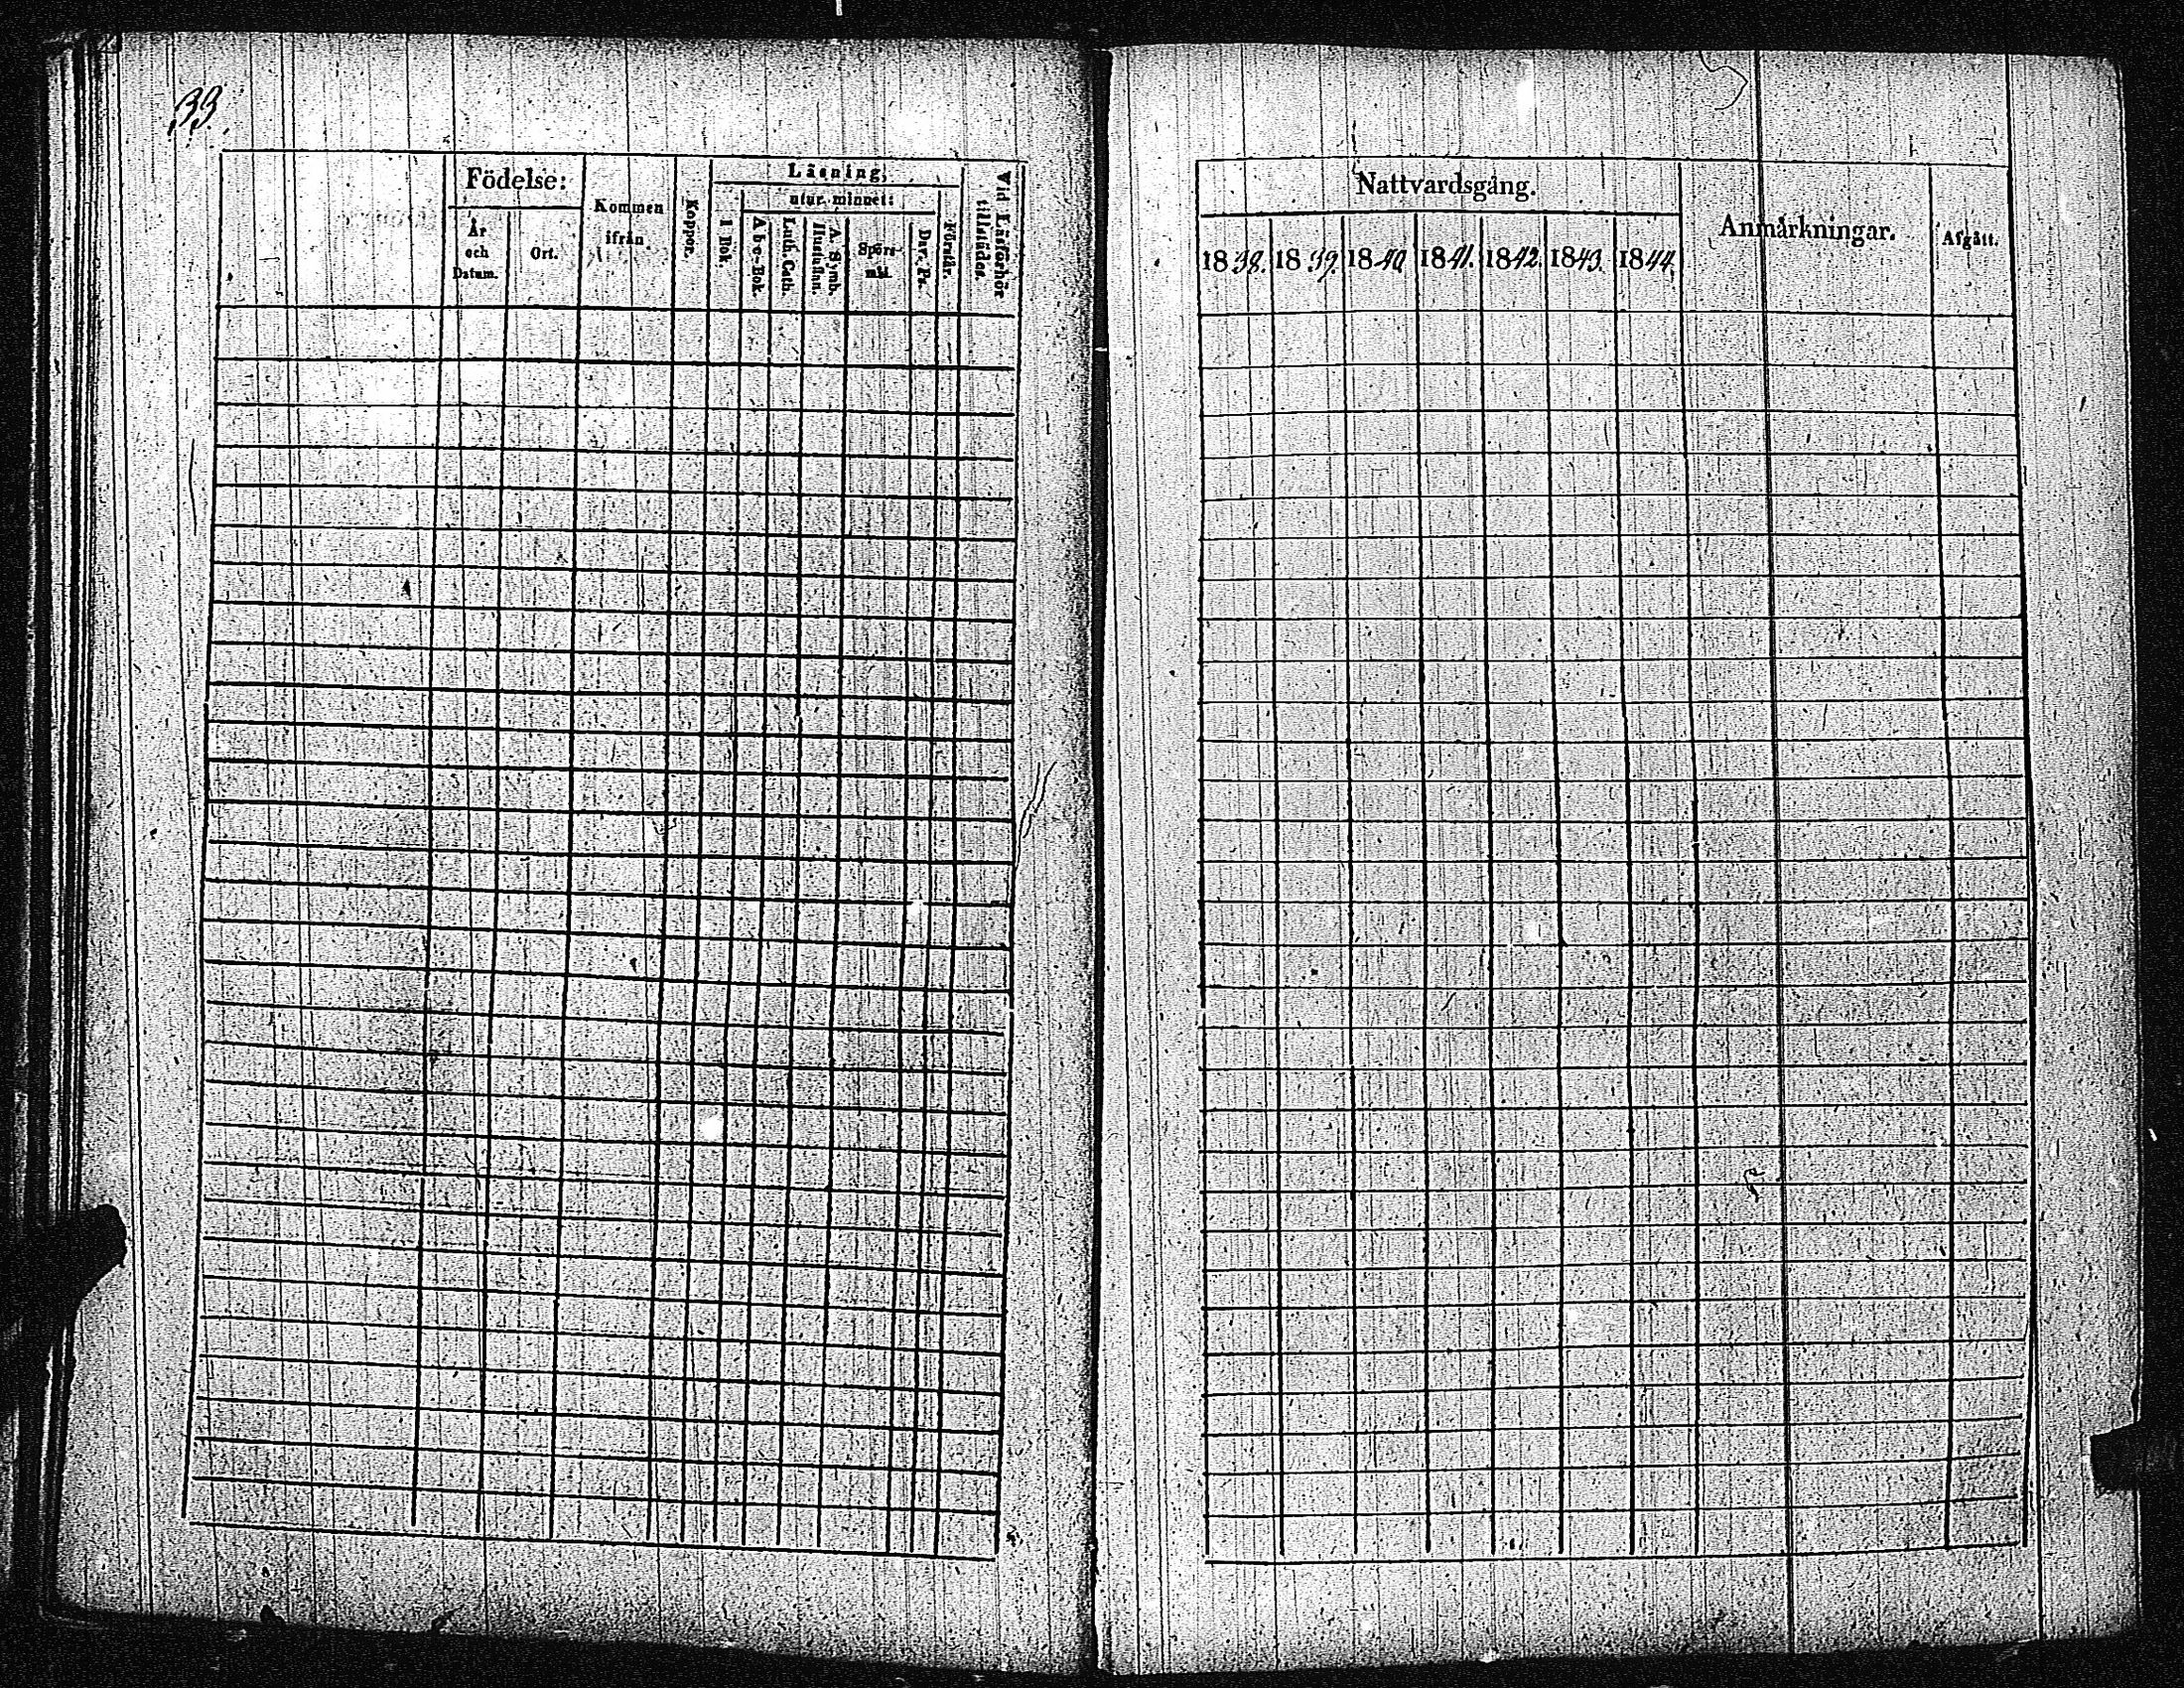 33.
Födelse:
År och Datum.
Ort.
Kommen ifrån.
Koppor.
Läsning,
utur minnet:
I Bok.
Abc-Bok.
Luth. Cath.
A. Symb. Hustaflan.
Spörsmål.
Dav. Ps.
Förstår.
Vid Läsförhör tillstädes.
Nattvardsgång.
1838. 1839. 1840 1841. 1842. 1843. 1844.
Anmärkningar.
Afgått.